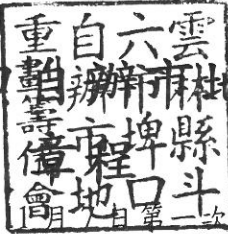 雲林縣斗
六市埤口
自辦市地
重劃籌備會
章程
日第一次